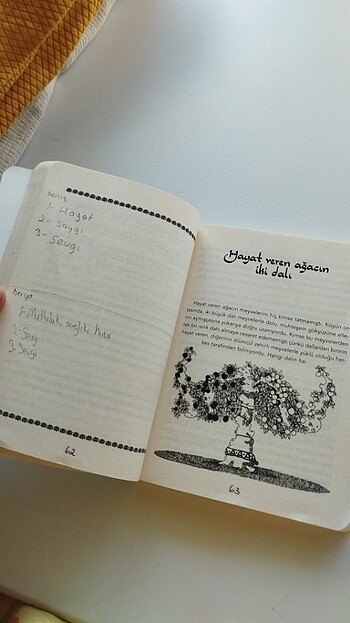 Deniz
1- Hayat
2- Saygı
3- Sevgi
Derya
1- Mutluluk, sağlık, huzur
2- Saygı
3- Sevgi
62
Hayat veren ağacın
iki dalı
Hayat veren ağacın meyvelerini hiç kimse tatmamıştı. Köyün or-
tasında, iki büyük dalı meyvelerle dolu, muhteşem gökyüzüne
yukarıya doğru uzanıyordu. Kimse bu meyvelerden
tek bir ısırık dahi almaya cesaret edememişti çünkü dallardan birinin
hayat veren, diğerinin ölümcül zehirli meyvelerle yüklü olduğu her-
kes tarafından biliniyordu. Hangi dalın ha-
63